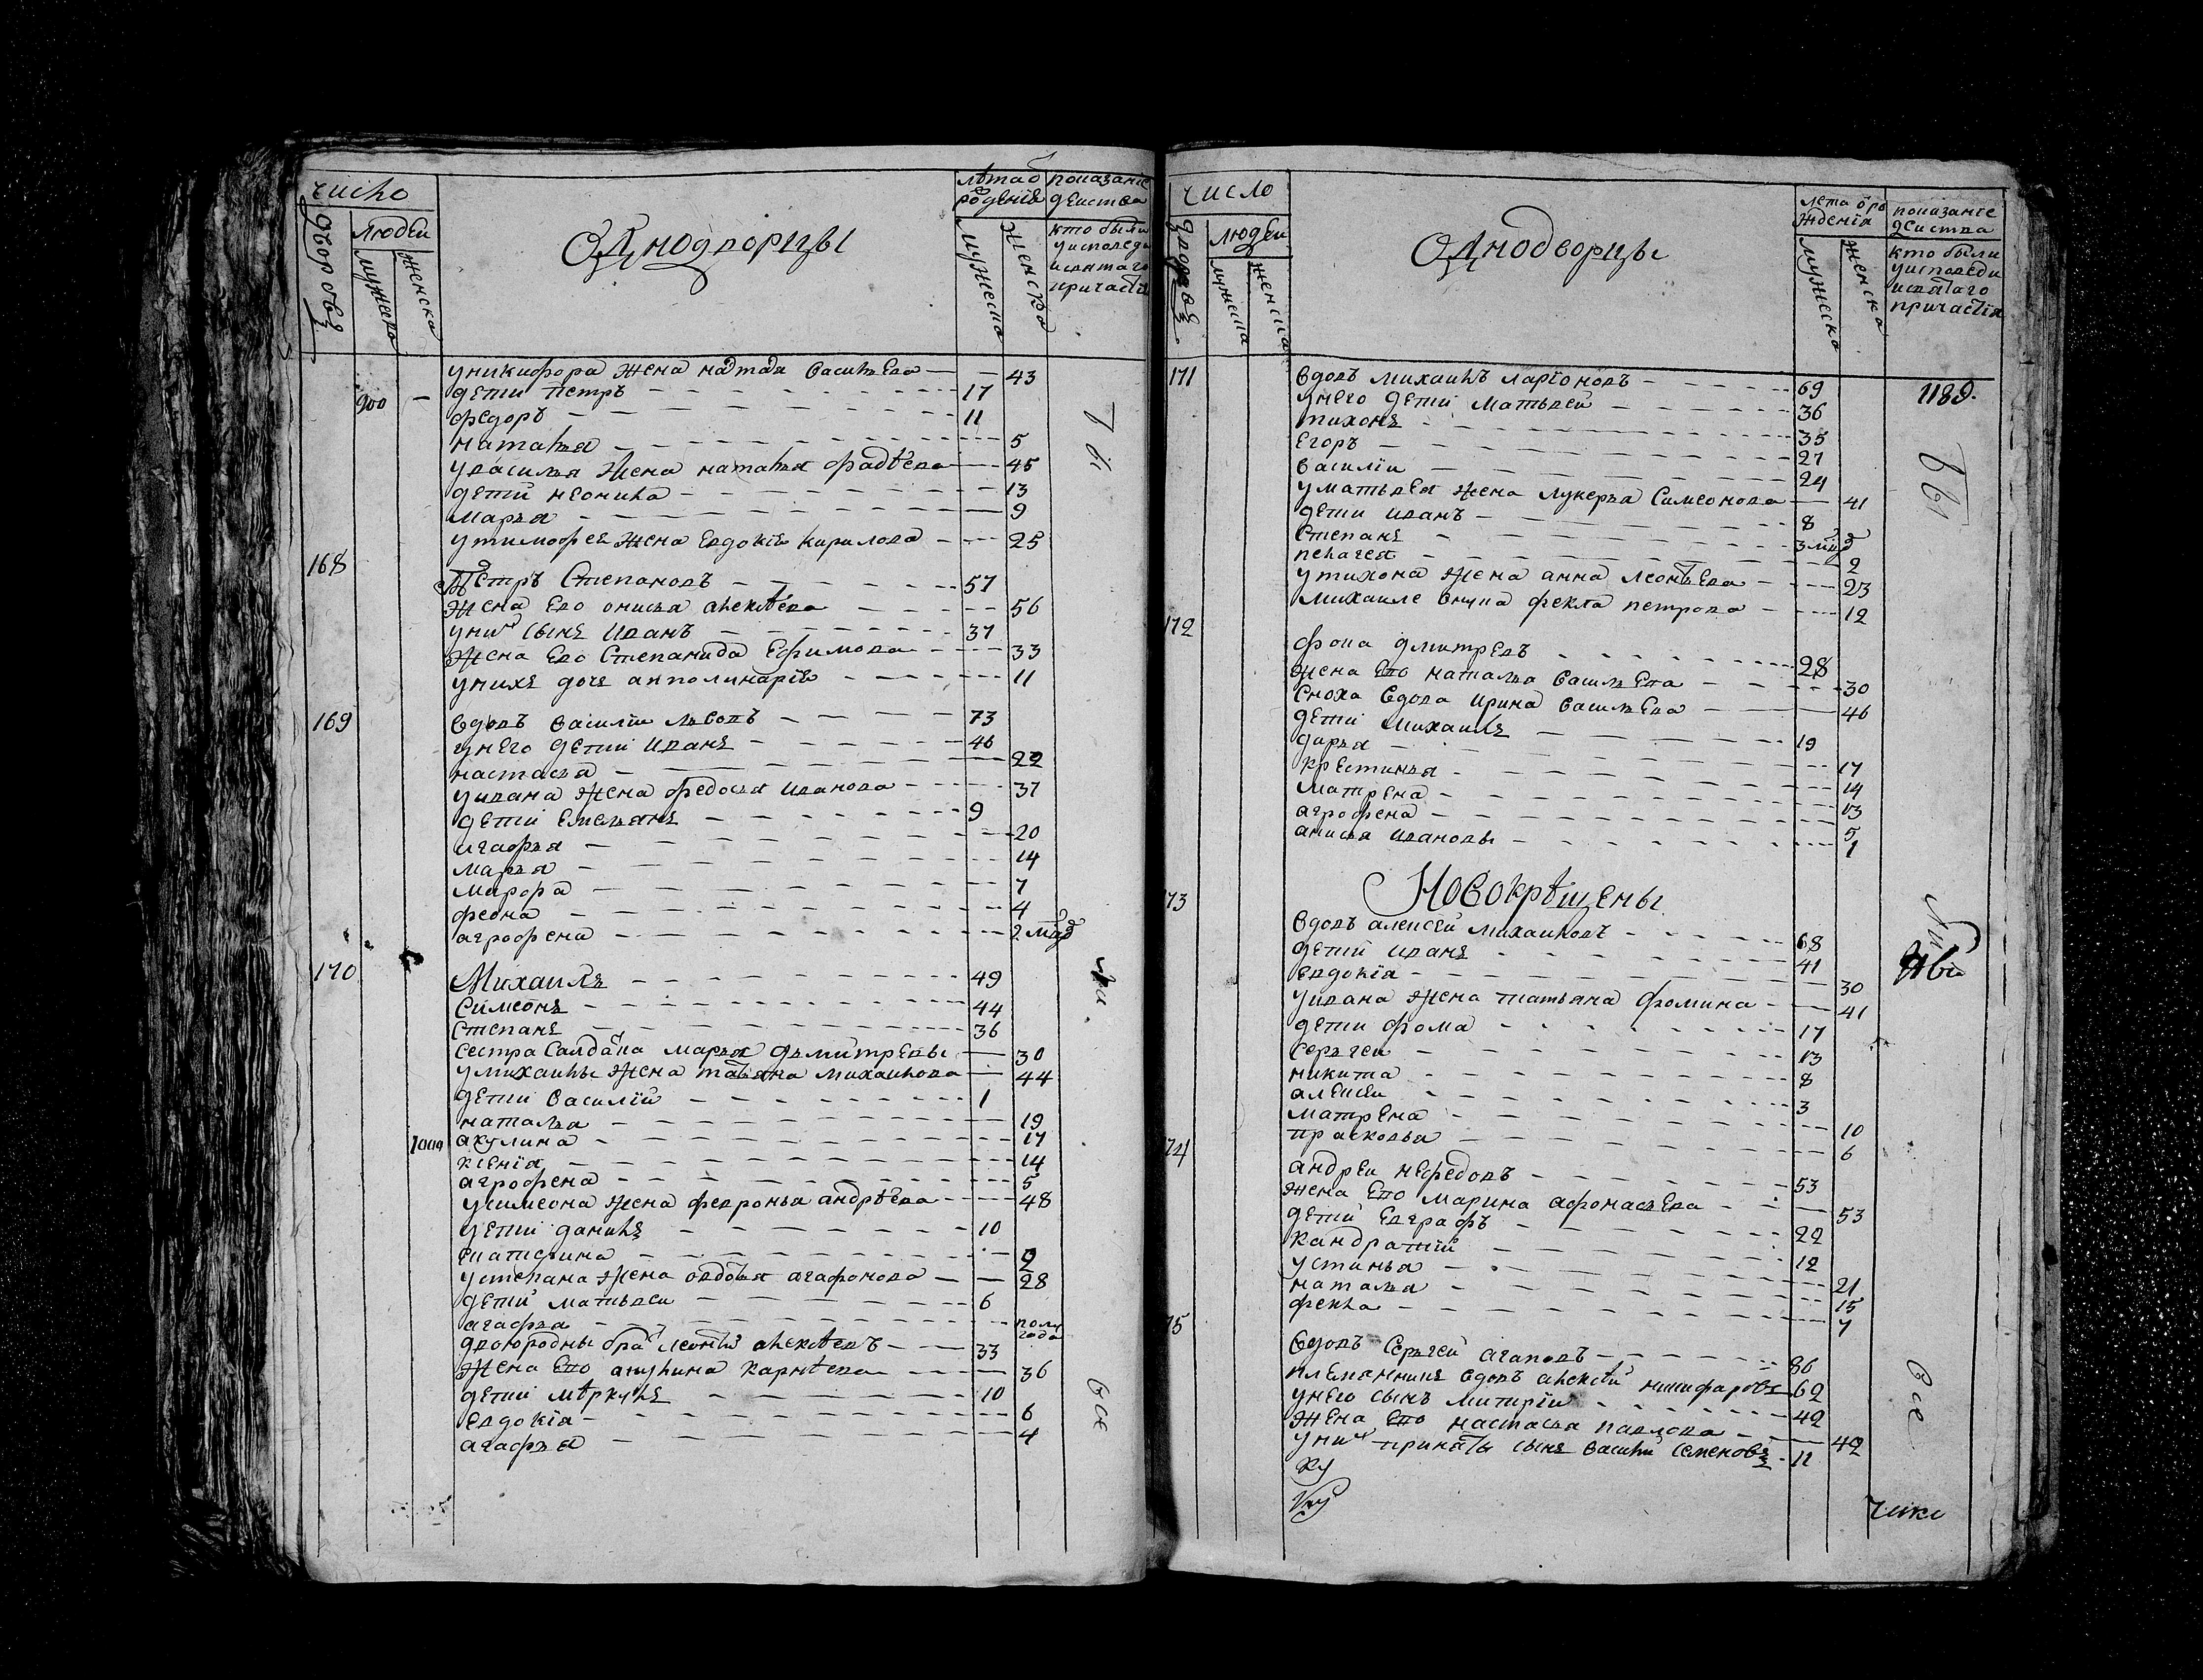 число
дворовъ
людей
мужеска
женска
Однодворцы
лѣта ѿ рожденїя
мужеска
женска
показанїе действа
кто были
у исповеди
и святаго
причастїя
у никифора жена наталя василъева — 43
900 — дети петръ — 17
федоръ — 11
наталъя — 5
у василъя жена наталъя фадѣева — 45
дети неонила — 13
маръя — 9
у тимофея жена евдокїя кирилова — 25
168
Петръ Степановъ — 57
жена ево онисъя алекѣева — 56
у них сынъ иванъ — 37
жена ево Степанида Ефимова — 33
у нихъ дочь апполинарїя — 11
169 вдовъ василїи лвовъ — 73
у него дети иванъ — 46
настасъя — 22
у ивана жена федосъя иванова — 37
дети Емельянъ — 9
агафъя — 20
маръя — 14
мавра — 7
феона — 4
агрофена — 2 млд
170 Михаилъ — 49
Симеонъ — 44
Степанъ — 36
сестра салдатка маръя дъмитревы — 30
у михаилы жена татъяна михаилова — 44
дети василїй — 1
наталъя — 19
1000 акулина — 17
ксенїя — 14
агрофена — 5
у симеона жена февронъя андрѣева — 48
дети данилъ — 10
екатерина — 2
у степана жена овдотъя агафонова — 28
дети матъвеи — 6
агафъя — полугода
двоюродны братъ леонтїй алекѣевъ — 33
жена ево акулина карнѣева — 36
дети мѣркулъ — 10
евдокїя — 6
агафъя — 4
всѣ
число
дворовъ
людей
мужеска
женска
Однодворцы
лета ѿ рождения
мужеска
женска
показанїе действа
кто были
у исповеди
и святаго
причастїя
1189.
171 вдовъ михаилъ ларїоновъ — 69
у него дети матъвей — 36
тихонъ — 35
Егоръ — 27
василїи — 24
у матъвея жена лукеръя симеонова — 41
дети иванъ — 8
степанъ — 3 млд
пелагея — 2
у тихона жена анна леонтъева — 23
михаиле внука фекла петрова — 12
172
фока дмитревъ — 28
жена ево наталъя василъева — 30
сноха вдова ирина василъева — 46
дети михаилъ — 19
даръя — 17
крестинъя — 14
матрена — 13
агрофена — 5
анисъя ивановы — 1
Новокрѣщены
173
вдовъ алексей михаиловъ — 68
дети иванъ — 41
евдокїя — 30
у ивана жена татьяна фомина — 41
дети фома — 17
серъгеи — 13
никита — 8
алексеи — 3
матрена — 10
прасковъя — 6
174
андреи нефедовъ — 53
жена ево марина афонасъева — 53
дети евграфъ — 22
кандратїй — 12
устинъя — 21
наталъя — 15
фекла — 7
175
вдовъ серъгеи агаповъ — 86
племянникъ вдовъ алексѣй никифаровъ 62
у него сынъ митрїи — 42
жена ево настасъя павлова — 42
у них приняты сынъ василїй семеновъ — 11
всѣ